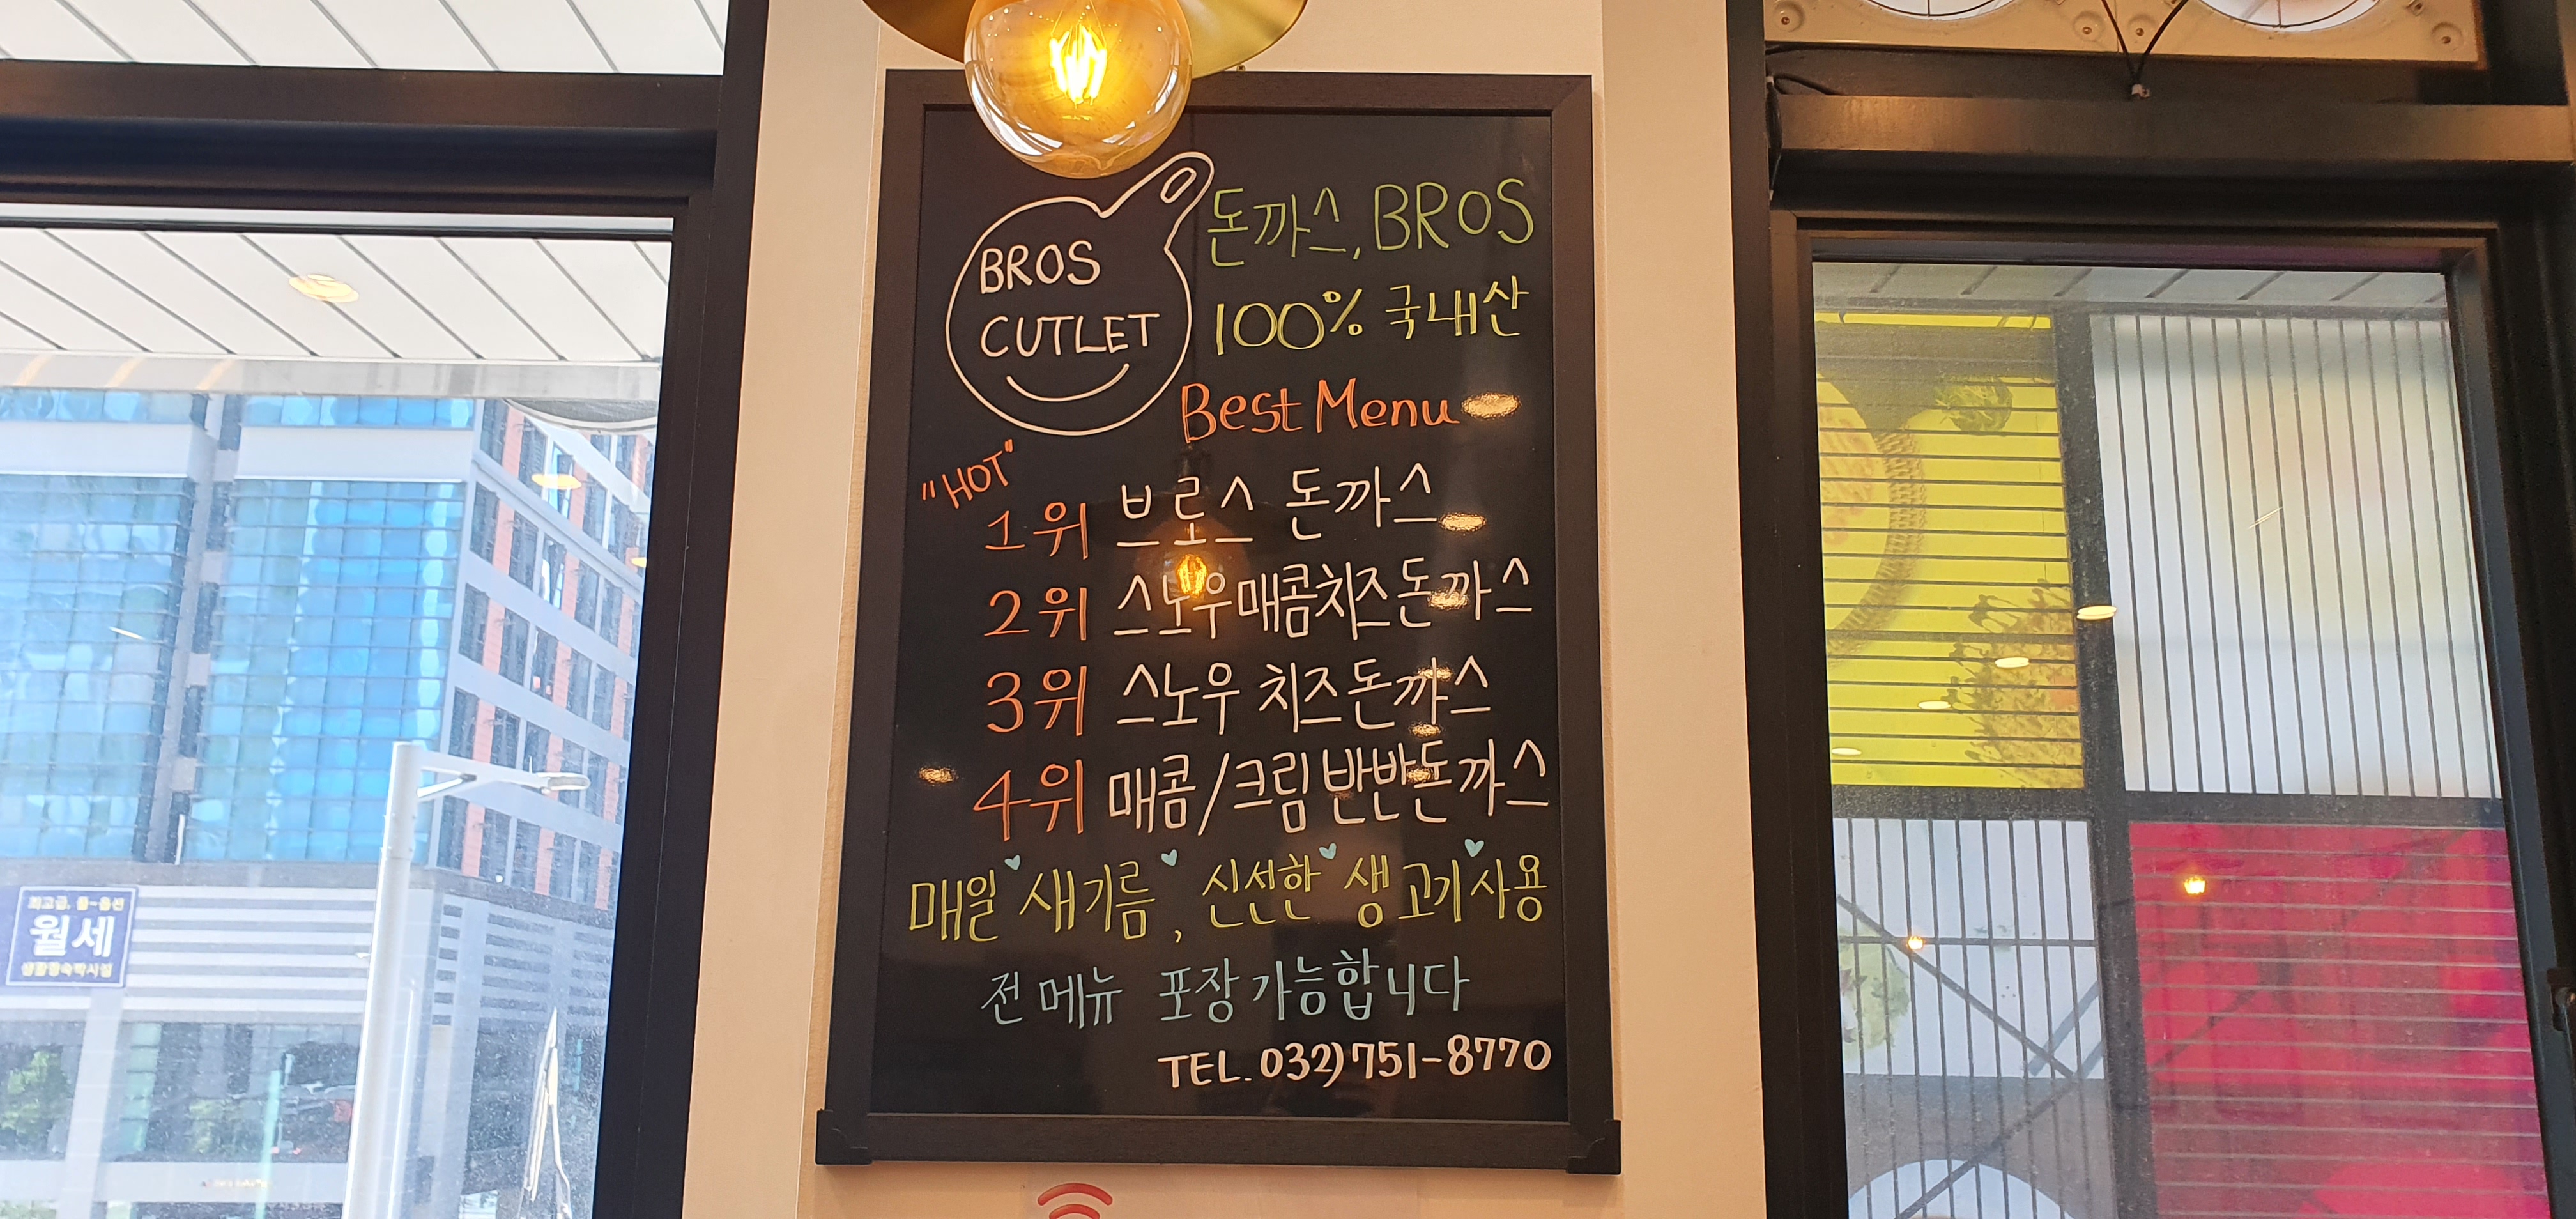 BROS
CUTLET
돈까스, BROS
100% 국내산
Best Menu
"HOT"
1위 브로스 돈까스
2위 스노우매콤치즈돈까스
3위 스노우 치즈돈까스
4위 매콤/크림반반돈까스
매일 새기름, 신선한 생고기사용
전메뉴 포장가능합니다
TEL. 032)751-8770
최고급, 풀-옵션
월세
생활형숙박시설